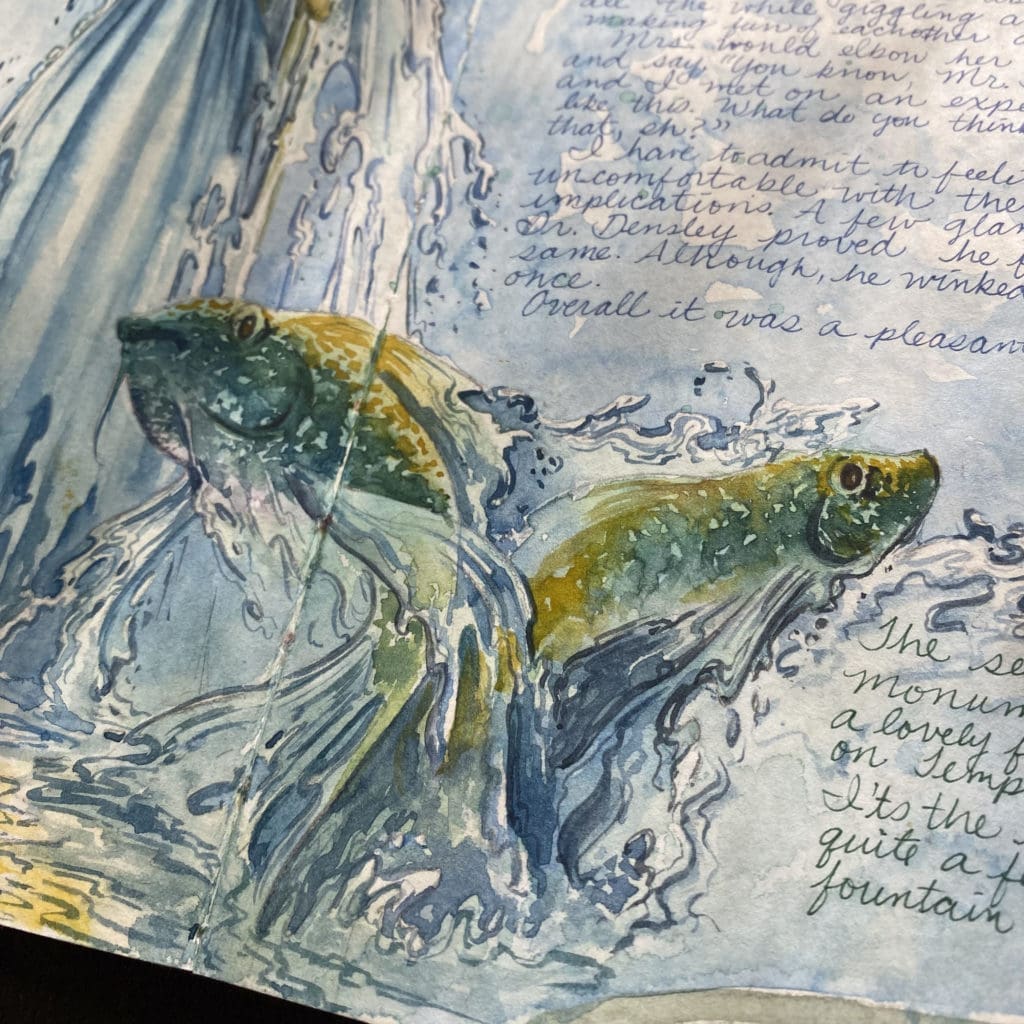 all the while giggling a
making fun of eachother
Mrs. would elbow her
and say, "You know, Mr.
and I met on an expe
like this. What do you thin
that, eh?"
I have to admit to feeli
uncomfortable with the
implications. A few glan
Dr. Densley proved he f
same. Although, he winked
once.
Overall it was a pleasan
The se
monum
a lovely f
on Temp
I'ts the
quite a f
fountain